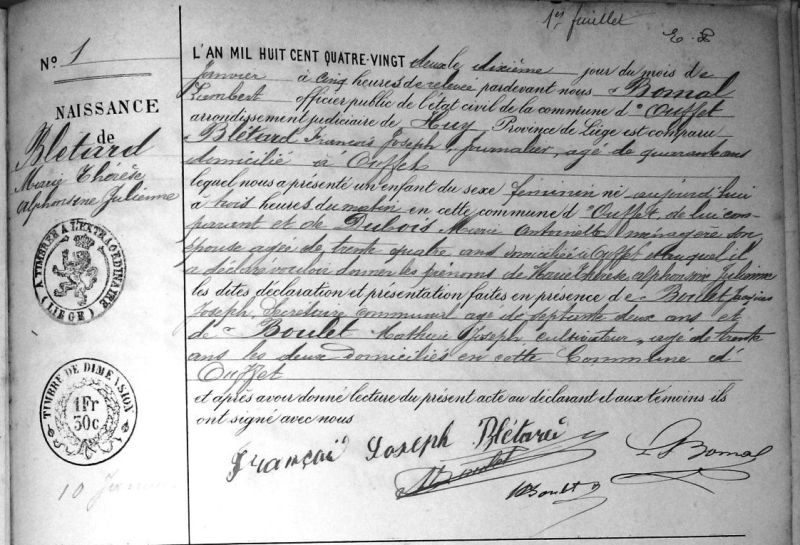 1er feuillet
E. P.
N° 1
NAISSANCE
de
Blétard
Marie Thérèse
Alphonsine Julienne
A TIMBRER A L'EXTRAORDINAIRE
(LIEGE)
TIMBRE DE DIMENSION
1 Fr
30c
10 Janvier
L'AN MIL HUIT CENT QUATRE-VINGT deux le dixième jour du mois de
Janvier à cinq heures de relevée pardevant nous Bomal
Lambert officier public de l'état civil de la commune d'Ouffet
arrondissement judiciaire de Huy Province de Liège est comparu
Blétard François Joseph, journalier, agé de quarante ans
domicilié à Ouffet
lequel nous a présenté un enfant du sexe féminin né aujourd'hui
à trois heures du matin en cette commune d'Ouffet, de lui com-
parant et de Dubois Marie Antoinette ménagère son
épouse agée de trente quatre ans domiciliée à Ouffet et auquel il
a déclaré vouloir donner les prénoms de Marie Thérèse Alphonsine Julienne
les dites déclaration et présentation faites en présence de Boulet
Joseph, Secrétaire Communal agé de septante deux ans et
de Boulet Mathieu Joseph, cultivateur, agé de trente
ans les deux domiciliés en cette Commune d'
Ouffet
et après avoir donné lecture du présent acte au déclarant et aux témoins ils
ont signé avec nous
Françoi Joseph Blétard
Boulet
L Bomal
Boulet